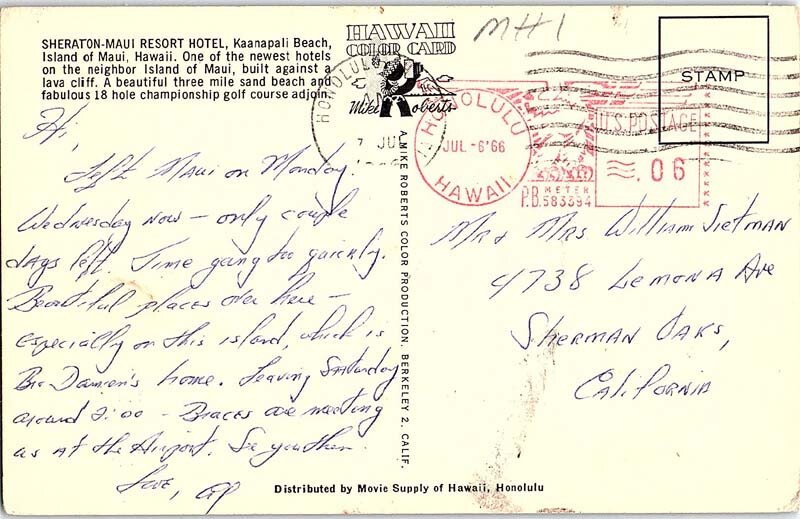 SHERATON-MAUI RESORT HOTEL, Kaanapali Beach,
Island of Maui, Hawaii. One of the newest hotels
on the neighbor Island of Maui, built against a
lava cliff. A beautiful three mile sand beach and
fabulous 18 hole championship golf course adjoin.
HAWAII
COLOR CARD
Mike Roberts
MH1
STAMP
HONOLULU
7 JUL
HONOLULU
JUL -6'66
HAWAII
U.S. POSTAGE
.06
P.B. METER
583394
Hi,
Left Maui on Monday.
Wednesday now – only couple
days left. Time going too quickly.
Beautiful places over here –
especially on this island, which is
Bro Damien's home. Leaving Saturday
around 2:00 – Braces are meeting
us at the Airport. See you then.
Love,
A MIKE ROBERTS COLOR PRODUCTION. BERKELEY 2. CALIF.
Mr & Mrs William Sietman
4738 Lemona Ave
Sherman Oaks,
California
Distributed by Movie Supply of Hawaii, Honolulu